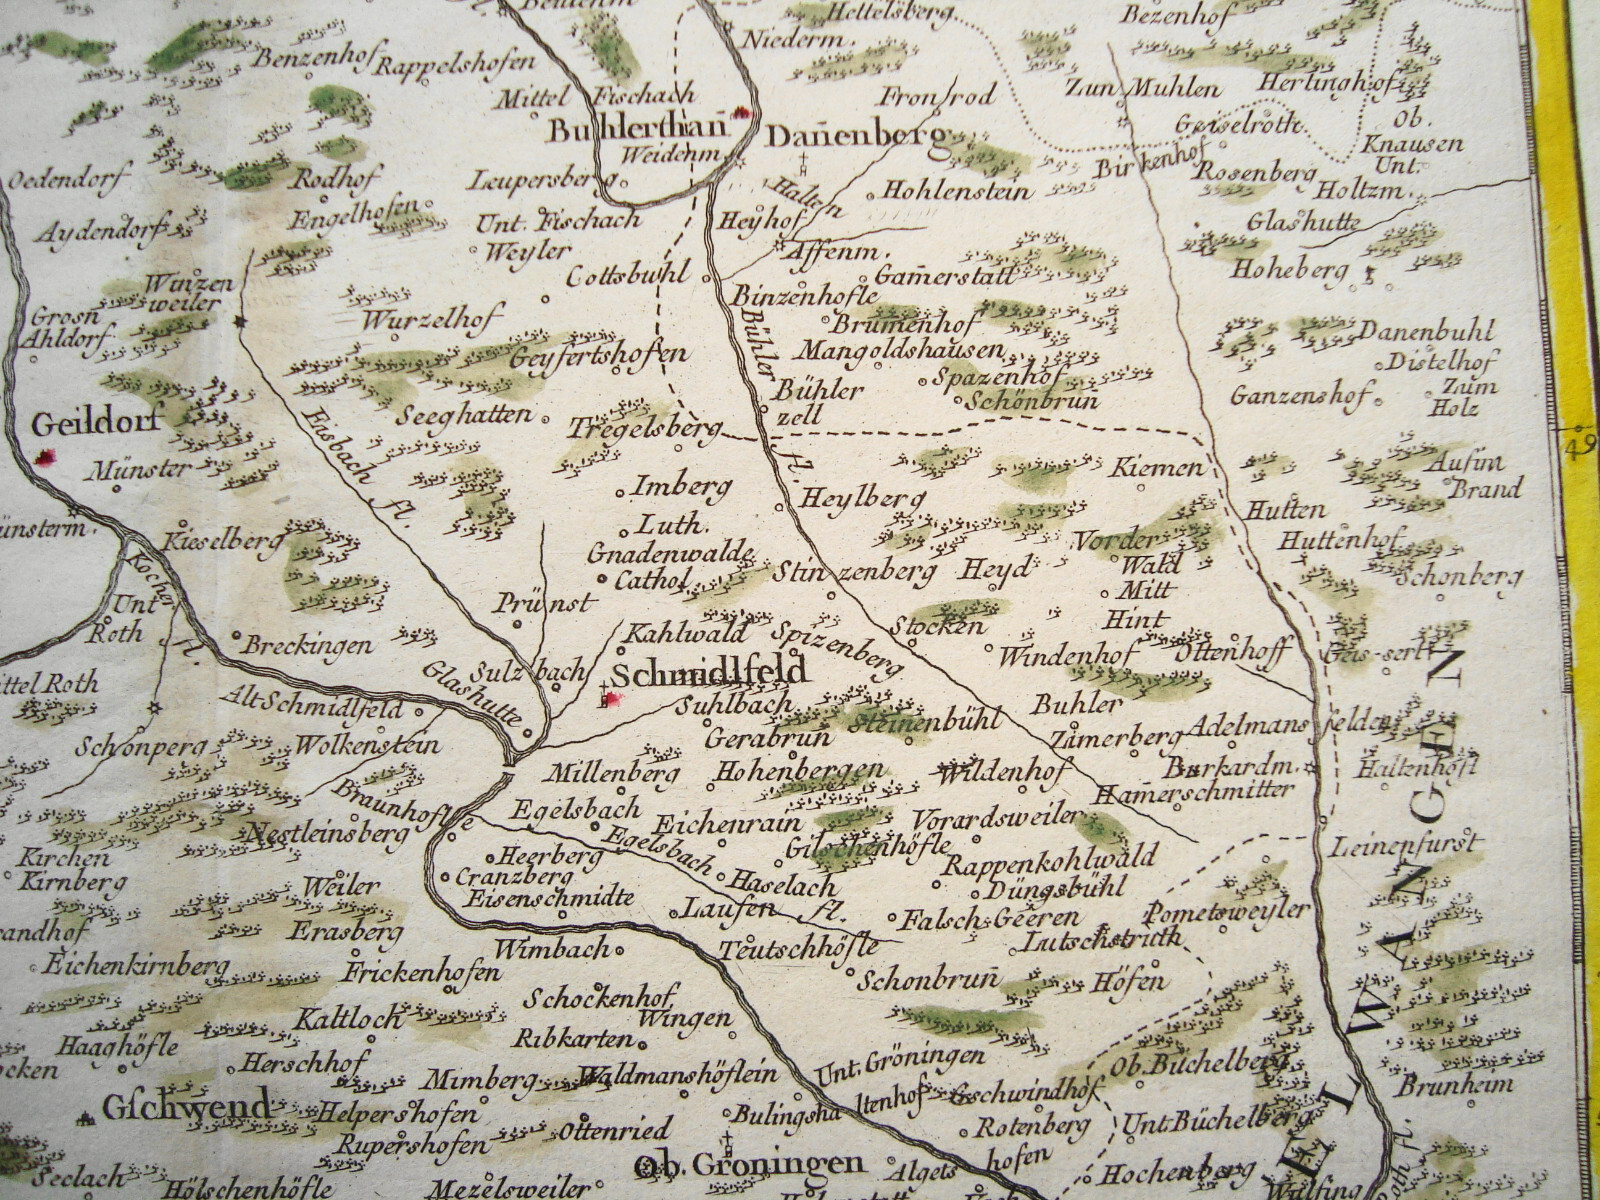 Hettelsberg
Bezenhof
Niederm.
Benzenhof
Rappelshofen
Mittel Fischach
Fronrod
Zun Muhlen
Hertinghof
Buhlerthañ
Dañenberg
Geiselroth
Ob.
Knausen
Unt.
Weidenm.
Birkenhof
Rosenberg
Holtzm.
Oedendorf
Rodhof
Leupersberg
Halden
Hohlenstein
Engelhofen
Unt. Fischach
Heyhof
Glashutte
Aydendorf
Weyler
Affenm.
Cottsbuhl
Gam̃erstatt
Hoheberg
Winzen
weiler
Binzenhofle
Grosñ
Ahldorf
Wurzelhof
Brumenhof
Danenbuhl
Geyfertshofen
Bühler
fl.
Mangoldshausen
Distelhof
Spazenhof
Zum
Holz
Bühler
zell
Schönbruñ
Ganzenshof
Geildorf
Seeghatten
Tregelsberg
Eisbach fl.
Münster
Kiemen
Aufim
Brand
49
Imberg
Heylberg
Hutten
Luth.
Kieselberg
Gnadenwalde
Cathol
Vorder
Wald
Mitt
Hint
Huttenhof
Schonberg
Kocher fl.
Stinzenberg
Heyd
Unt
Roth
Prünst
Stocken
Breckingen
Kahlwald
Spizenberg
Windenhof
Ottenhoff
Sulzbach
Schmidlfeld
Glashutte
Alt Schmidlfeld
Suhlbach
Steinenbühl
Buhler
Schonperg
Wolkenstein
Gerabruñ
Zimerberg
Adelmansfelden
Millenberg
Hohenbergen
Wildenhof
Burkardm.
Haltzenhöfl
Braunhofle
Ham̃erschmitter
Egelsbach
Nestleinsberg
Eichenrain
Vorardsweiler
Egelsbach fl.
Gilschenhöfle
Leinenfurst
Kirchen
Kirnberg
Heerberg
Rappenkohlwald
Cranzberg
Haselach
Düngsbühl
Weiler
Eisenschmidte
Laufen
Falsch Geeren
Pometsweyler
Erasberg
Wimbach
Teutschhöfle
Lutschstruth
Eichenkirnberg
Frickenhofen
Schonbruñ
Höfen
Schockenhof
Wingen
Kaltloch
Ribkarten
Haaghöfle
Herschhof
Unt. Gröningen
Ob. Büchelberg
Mimberg
Waldmanshöflein
Gschwindhof
Brunheim
Gschwend
Helpershofen
Bulingshaltenhof
Rotenberg
Unt Büchelberg
Rupershofen
Ottenried
Ob. Groningen
Algetshofen
Hochenberg
Seelach
Hölschenhöfle
Mezelsweiler
Wulfing
Roth fl.
ELWANGEN